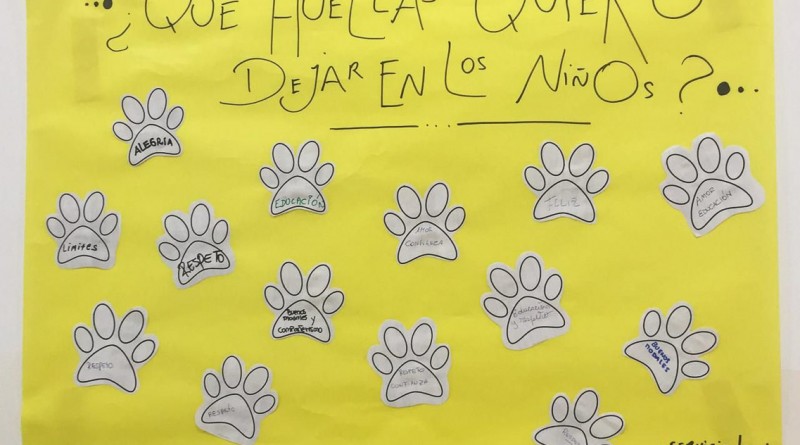 ¿QUÉ HUELLAS QUIERO
DEJAR EN LOS NIÑOS?
ALEGRIA
EDUCACIÓN
FELIZ
AMOR
EDUCACIÓN
Límites
RESPETO
AMOR
CONFIANZA
BUENOS
MODALES
Y
COMPAÑERISMO
Educacion
y respeto
BUENOS
MODALES
RESPETO
RESPETO
CONFIANZA
RESPETO